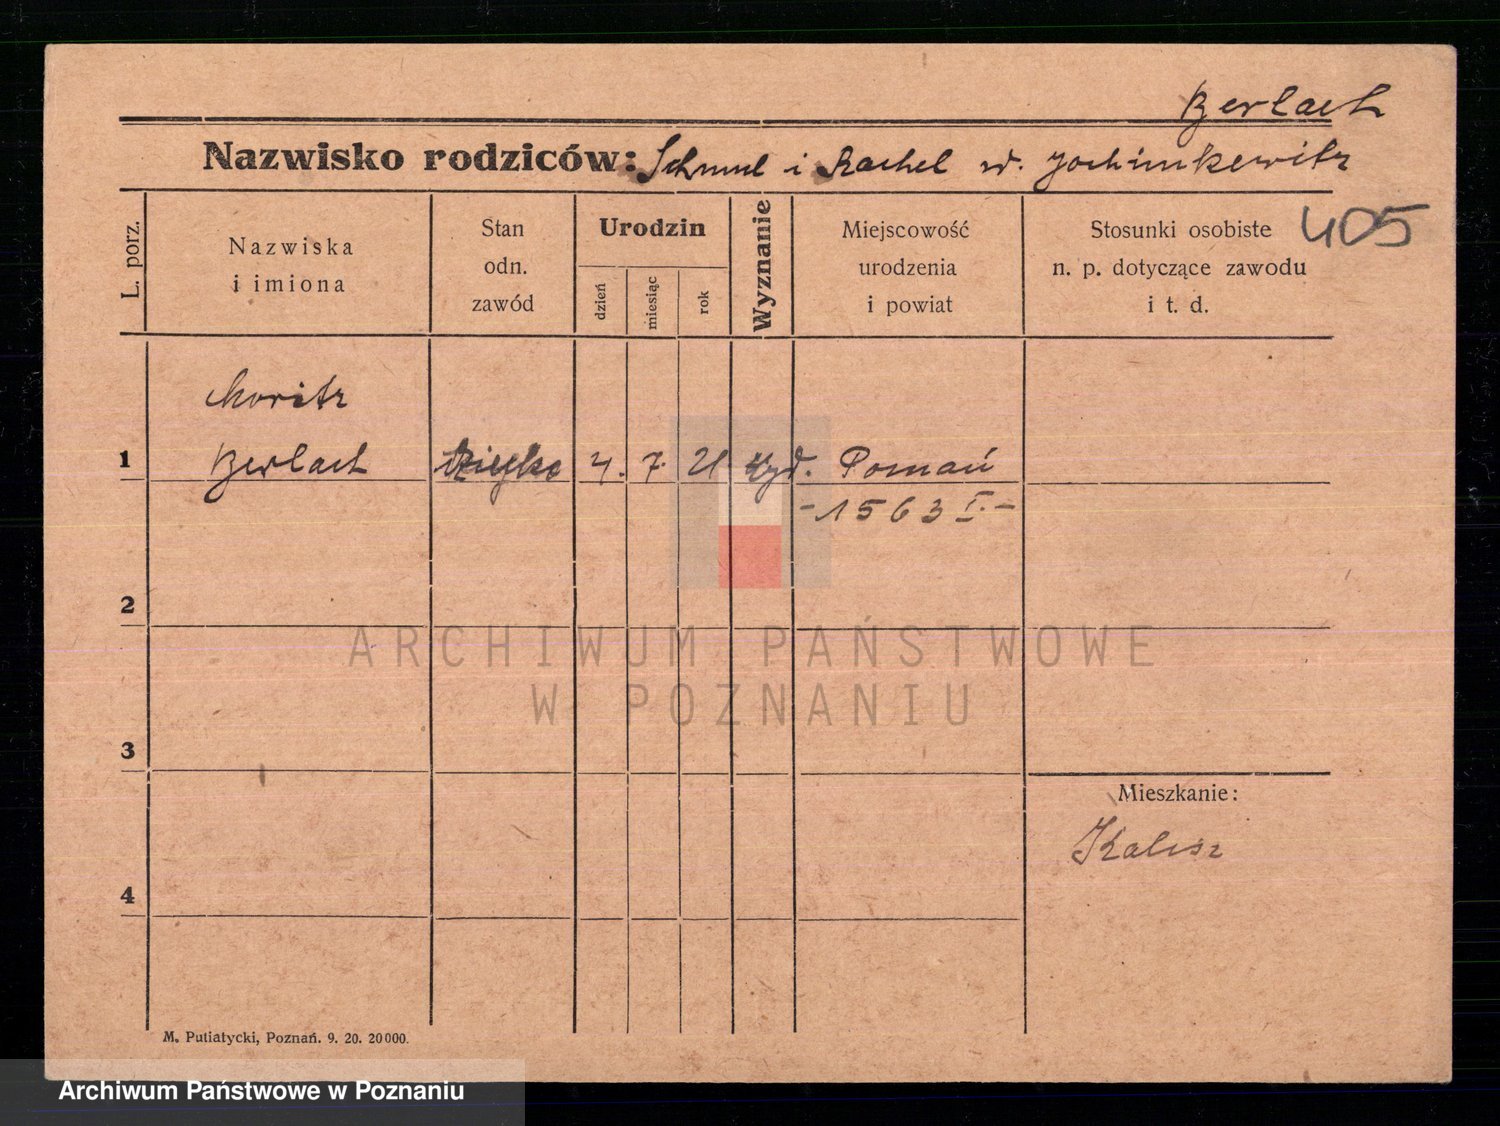 Berlach
Nazwisko rodziców: Schmul i Rachel
405
L. porz.
Nazwiska
i imiona
Stan
odn.
zawód
Urodzin
dzień
miesiąc
rok
Wyznanie
Miejscowość
urodzenia
i powiat
Stosunki osobiste
n. p. dotyczące zawodu
i t. d.
Moritz
1 Berlach 4. 7. 21 żyd. Poznań
-1563 I.-
2
ARCHIWUM PAŃSTWOWE
W POZNANIU
3
Mieszkanie:
Kalisz
4
M. Putiatycki, Poznań. 9. 20. 20000.
Archiwum Państwowe w Poznaniu